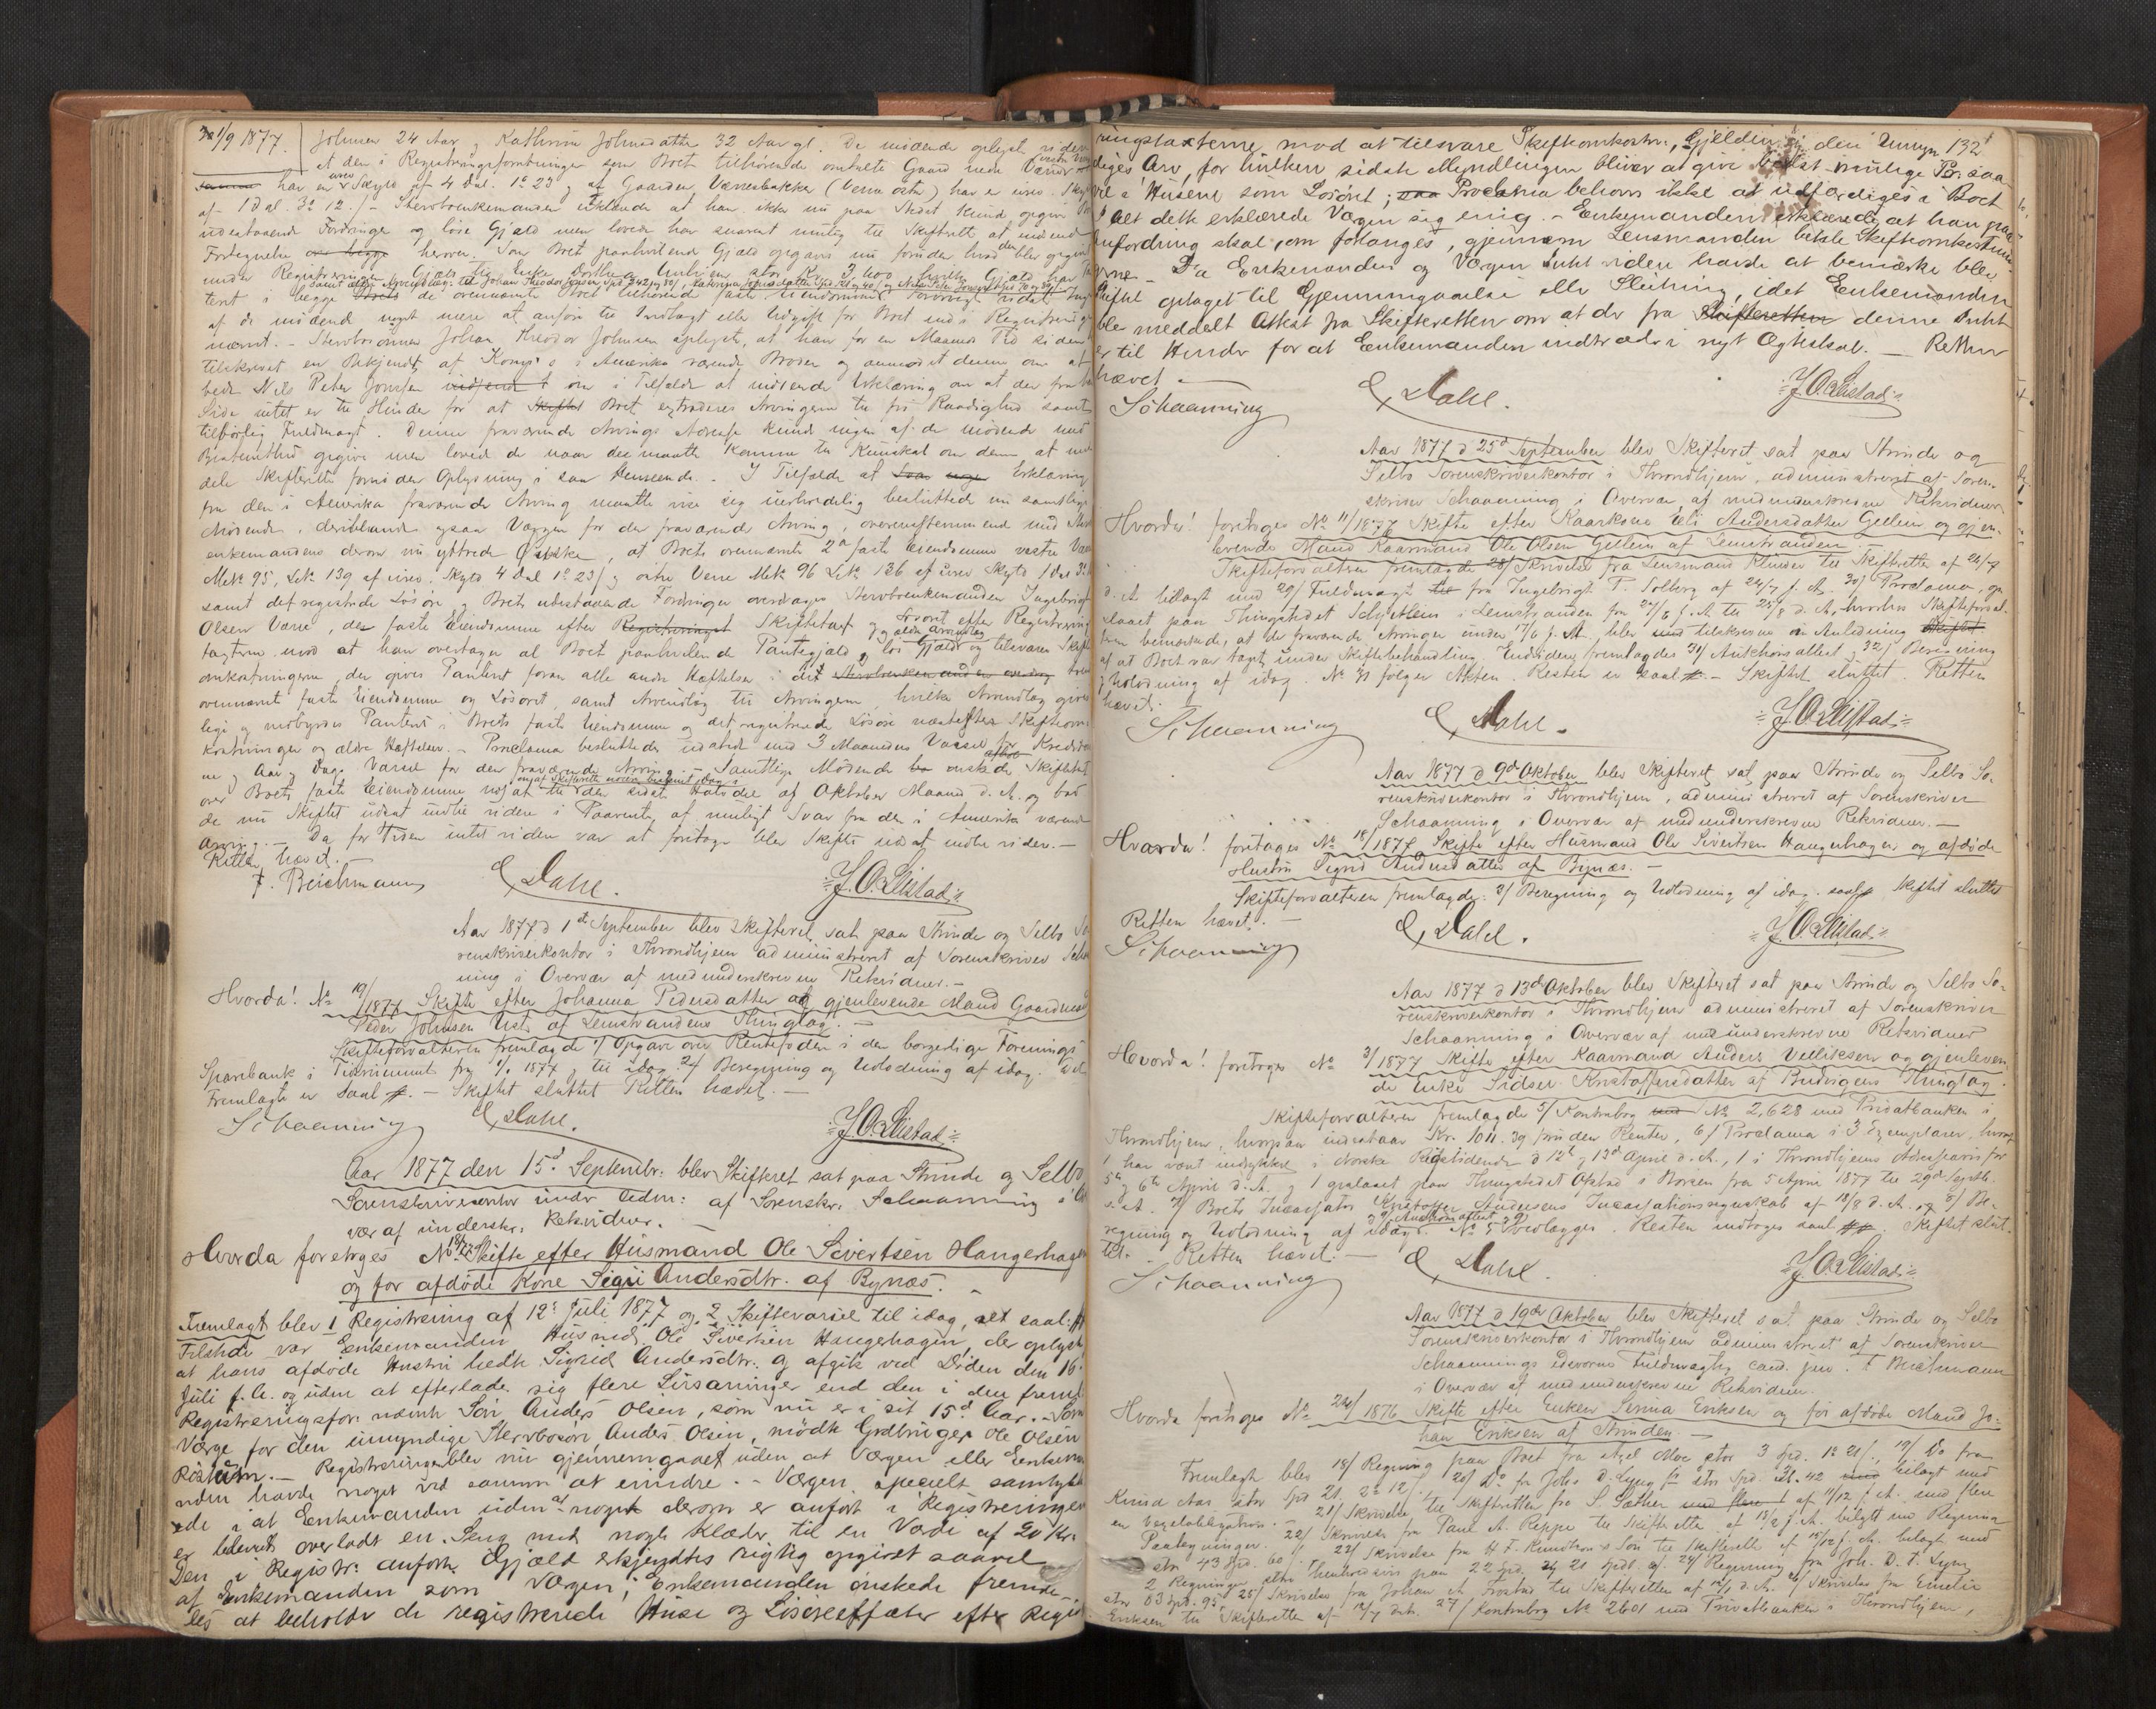 1/9 1877. Johnsen 24 Aar, Kathrina Johnsdatter 32 Aar gl. De mødende oplyste videre
at den i Registreringsforretningen som Boet tilhørende omtalte Gaard nedre Værnes
har en urev. Skyld af 4 Dal. 1 º 23 og at Gaarden Værnesbakke har en urev. Skyld
af 1 Dal. 3 º 12. Stervboenkemanden erklærede at han ikke nu paa Stedet kunde opgive
udestaaende Fordringer og løse Gjæld men lovede har snarest mulig til Skifteretten at indsende
Fortegnelse herover. Som Boet paahvilende Gjæld opgaves nu foruden hvad der blev opgivet
under Registreringen
samt ældre Arvendlæg: til Johan Theodor Johnsen
i begge de ovennævnte Boet tilhørende faste Eiendomme. Forøvrigt vidste Ingen
af de mødende noget mere at anføre til Indtægt eller Udgift for Boet end i Registreringen
nævnt. - Stervbosønnen Johan Theodor Johnsen oplyste, at han for en Maaned Tid siden
tilskrevet en Bekjendt af Konge i Amerika værende Broder og anmodet denne om at
bede Nils Peter Johnsen om i Tilfælde at indsende Erklæring om at der fra hans
Side intet er til Hinder for at Boet extraderes Arvingerne til fri Raadighed samt
tilbørlig Fuldmagt. Denne fraværende Arvings Adresse kunde ingen af de mødende med
Bestemthed opgive men lovede de naar de maatte komme til Kundskab om den at med-
dele Skifteretten fornøden Oplysning i saa Henseende. - I Tilfælde at Erklæring
fra den i Amerika fraværende Arving maatte vise sig uerholdelig besluttede nu samtlige
Mødende, deriblandt ogsaa Værgen for den fraværende Arving, overensstemmende med Stervbo-
enkemandens derom nu yttrede Ønske, at Boets ovennævnte 2de faste Eiendomme vestre Værne
Mtr. No 95, Lr. No 139 af urev. Skyld 4 Dal 1 º 23 og østre Verne Mtr. 96 Lr. 136 af urev Skyld 1 Dal 3 º
samt det registrerede Løsøre og Boets udestaaende Fordringer overdrages Stervboenkemanden Ingebrigt
Olsen Værne, de faste Eiendomme efter Skiftetaxt og Løsøret efter Registrerings
taxterne mod at han overtager al Boet paahvilende Pantegjæld og løs Gjæld og tilsvarer Skifte
omkostningerne, der gives Panteret foran alle andre Hæftelser i det
ovennævnte faste Eiendomme og Løsøret, samt Arvendlæg til Arvingerne, hvilke Arvendlæg gives
lige og medbyrdes Panteret i Boets faste Eiendomme og det registrerede Løsøre næstefter Skifteom-
kostninger og ældre Hæftelser. - Proclama besluttedes udstedt med 3 Maaneders Varsel for Kredito-
rer og Aar og Dags Varsel for den fraværende Arving. - Samtlige Mødende ønskede Skiftetaxt
over Boets faste Eiendomme udsat til den sidste Halvdel af Oktober Maaned d. A. og blev
de nu Skiftet udsat indtil videre i Paavente af muligt Svar fra den i Amerika værende
Arving. - Da for Tiden intet videre var at foretage blev Skiftet udsat indtil videre. -
Retten hævet.
F. Beichmann E Dahl. J. O. Slistad
Aar 1877 d 1ste September blev Skifteret sat paa Strinde og Selbo So-
renskriverkontor i Throndhjem administreret af Sorenskriver Schaan-
ning i Overvær af medunderskrevne Retsvidner. -
Hvorda! No 19/1877 Skifte efter Johanna Pedersdatter og gjenlevende Mand Gaardmand
Peder Johnsen Ust af Leinstrandens Thinglag. -
Skifteforvalteren fremlagde 1/ Opgave over Rentefoden i den borgerlige Forenings
Sparebank i Throndhjem fra 1/1 1877 til idag. 2/ Beregning og Udlodning af idag. Det
Fremlagte er saal. - Skiftet sluttet Retten hævet. -
Schaanning E Dahl. J. O. Slistad
Aar 1877 den 15d Septembr: blev Skifteret sat paa Strinde og Selbo
Sorenskriverkontor under Adm: af Sorenskr. Schaanning i Over-
vær af underskr. Retsvidner. -
Hvorda foretoges No 18/77 Skifte efter Husmand Ole Sivertsen Haugerhagen
og for afdøde Kone Sigri Andersdtr. af Bynæs. -
Fremlagt blev 1 Registrering af 12te Juli 1877 og 2 Skiftevarsel til idag, alt saal:
Tilstede var Enkemanden Husmd. Ole Sivertsen Haugerhagen, der oplyste
at hans afdøde Hustru hedte Sigrid Andersdtr. og afgik ved Døden den 16
Juli f. A. og uden at efterlade sig flere Livsarvinger end den i den freml.
Registreringsfor: nævnte Søn Anders Olsen, som nu er i sit 15d Aar. - Som
Værge for den umyndige Stervbosøn, Anders Olsen, mødte Grdbruger Ole Olsen
Røstum. - Registreringen blev nu gjennemgaaet uden at Værgen eller Enkema-
nden havde noget ved samme at erindre. - Værgen specielt samtykke-
de i at Enkemanden uden at noget derom er anført i Registreringen
er blevet overladt en Seng med nogle Klæder til en Værdi af 20 Kr.
Den i Registr: anførte Gjæld erkjendtes rigtig opgivet saavel
af Enkemanden som Værgen; Enkemanden ønskede fremde-
les at beholde de registrerede Huse og Løsøreeffecter efter Regist-
132
ringstaxterne mod at tilsvare Skifteomkostn., Gjælden og den Umyn-
diges Arv, for hvilken sidste Myndlingen bliver at give bedst mulige Pr. saa-
vel i Husene som Løsøret; Proclama behøves ikke at udfærdiges i Boet
I alt dette erklærede Værgen sig enig. - Enkemanden erklærede, at han paa
Anfordring skal, om forlanges, gjennem Lensmanden betale Skifteomkostnin-
gerne. - Da Enkemanden og Værgen intet videre havde at bemærke blev
Skiftet optaget til Gjennemgaaelse eller Slutning, idet Enkemanden
blev meddelt Attest fra Skifteretten om at der fra Skifteretten denne Intet
er til Hinder for at Enkemanden indtræder i nyt Ægteskab. - Retten
hævet. -
Schaanning E Dahl. J. O. Slistad
Aar 1877 d 25d September blev Skifteret sat paa Strinde og
Selbo Sorenskriverkontor i Throndhjem, administreret af Soren-
skriver Schaanning i Overvær af medunderskrevne Retsvidner
Hvorda! foretoges No 11/1877 Skifte efter Kaarkone Eli Andersdatter Gullein og gjen-
levende Mand Kaarmand Ole Olsen Gullein af Leinstranden. -
Skifteforvalteren fremlagde 28/ Skrivelse fra Lensmand Klinder til Skifteretten af 24/7
d. A. bilagt med 29/ Fuldmagt fra Ingebrigt T. Solberg af 24/7 f. A. 30/ Proclama, op-
slaaet paa Thingstedet Schefstein i Leinstranden fra 27/6 f. A. til 25/8 d. A., hvorhos Skifteforval-
teren bemærkede, at de fraværende Arvinger under 17/6 f. A. blev tilskrevne i Anledning
af at Boet var taget under Skiftebehandling. Endvidere fremlagdes 31/ Auktionsattest, 32/ Beregning
og Udlodning af idag. No 31 følger Akten. Resten er saal. - Skiftet sluttet. Retten
hævet.
Schaanning E Dahl. J. O. Slistad
Aar 1877 d 9de Oktober blev Skifteret sat paa Strinde og Selbo So-
renskriverkontor i Throndhjem, administreret af Sorenskriver
Schaanning i Overvær af medunderskrevne Retsvidner. -
Hvorda! foretages No 18/1877 Skifte efter Husmand Ole Sivertsen Haugerhagen og afdøde
Hustru Sigrid Andersdatter af Bynæs. -
Skifteforvalteren fremlagde: 3/ Beregning og Udlodning af idag. saal. Skiftet sluttet
Retten hævet. -
Schaanning E Dahl. J. O. Slistad
Aar 1877 d 13de Oktober blev Skifteret sat paa Strinde og Selbo So-
renskriverkontor i Throndhjem administreret af Sorenskriver
Schaanning i Overvær af medunderskrevne Retsvidner
Hvorda! foretoges No 3/1877 Skifte efter Kaarmand Anders Velliksen og gjenleven-
de Enke Sidsel Kristoffersdatter af Budvigens Thinglag.
Skifteforvalteren fremlagde 5/ Kontrabog No 2,628 med Privatbanken i
Throndhjem, hvorpaa indestaar Kr. 1011.39 foruden Renter, 6/ Proclama i 3 Exemplarer, hvoraf
1 har været indrykket i Norske Rigstidende d 12te og 13de April d. A., 1 i Throndhjems Adresseavis for
5te og 6te April d. A. og 1 opslaaet paa Thingstedet Opstad i Børsen fra 5 April 1877 til 29de Septb.
s. A. 7/ Boets Incassator Kristoffer Andersens Incassationsregnskab af 18/8 d. A. 8/ Be-
regning og Udlodning af idag. 9/ Auktionsattest. No 5 vedlægges. Resten indtages saal. Skiftet slut-
tet. - Retten hævet. -
Schaanning E Dahl. J. O. Slistad
Aar 1877 d 19de Oktober blev Skifteret sat paa Strinde og Selbo
Sorenskriverkontor i Throndhjem administreret af Sorenskriver
Schaannings edsvorne Fuldmægtig cand. jur. F. Beichmann
i Overvær af medunderskrevne Retsvidner.
Hvorda foretoges No 24/1876 Skifte efter Enken Sirina Eriksen og før afdøde Mand Jo-
han Eriksen af Strinden. -
Fremlagt blev 18/ Regning paa Boet fra Axel Moe stor 3 Spd. 1 º 21/, 19/ Do fra
Knud Aas stor Spd 21. 2 º 12/. 20/ Do fra Johs D. Lyng stor Spd. 42 bilagt med
en Vexelobligation. 21/ Skrivelse til Skifteretten fra S. Sæther af 11/12 f. A. med flere
Paategninger. 22/ Skrivelse fra Paul A. Reppe til Skifteretten af 13/9 f. A. bilagt med Regning
stor 43 Spd. 60/. 23/ Skrivelse fra H. F. Knudtzon & Søn til Skifteretten af 15/12 f. A. bilagt med
2 Regninger stor henholdsvis paa 22 Spd. 24 og 21 Spd. 24/ Regning fra Joh. D. F. Lyng
stor 63 Spd. 95, 25/ Skrivelse fra Johan A. Frostad til Skifteretten af 12/1 d. A. 26/ Skrivelse fra Emelie
Eriksen til Skifteretten af 2/7 d. A. 27/ Kontrabog No 2601 med Privatbanken i Throndhjem,